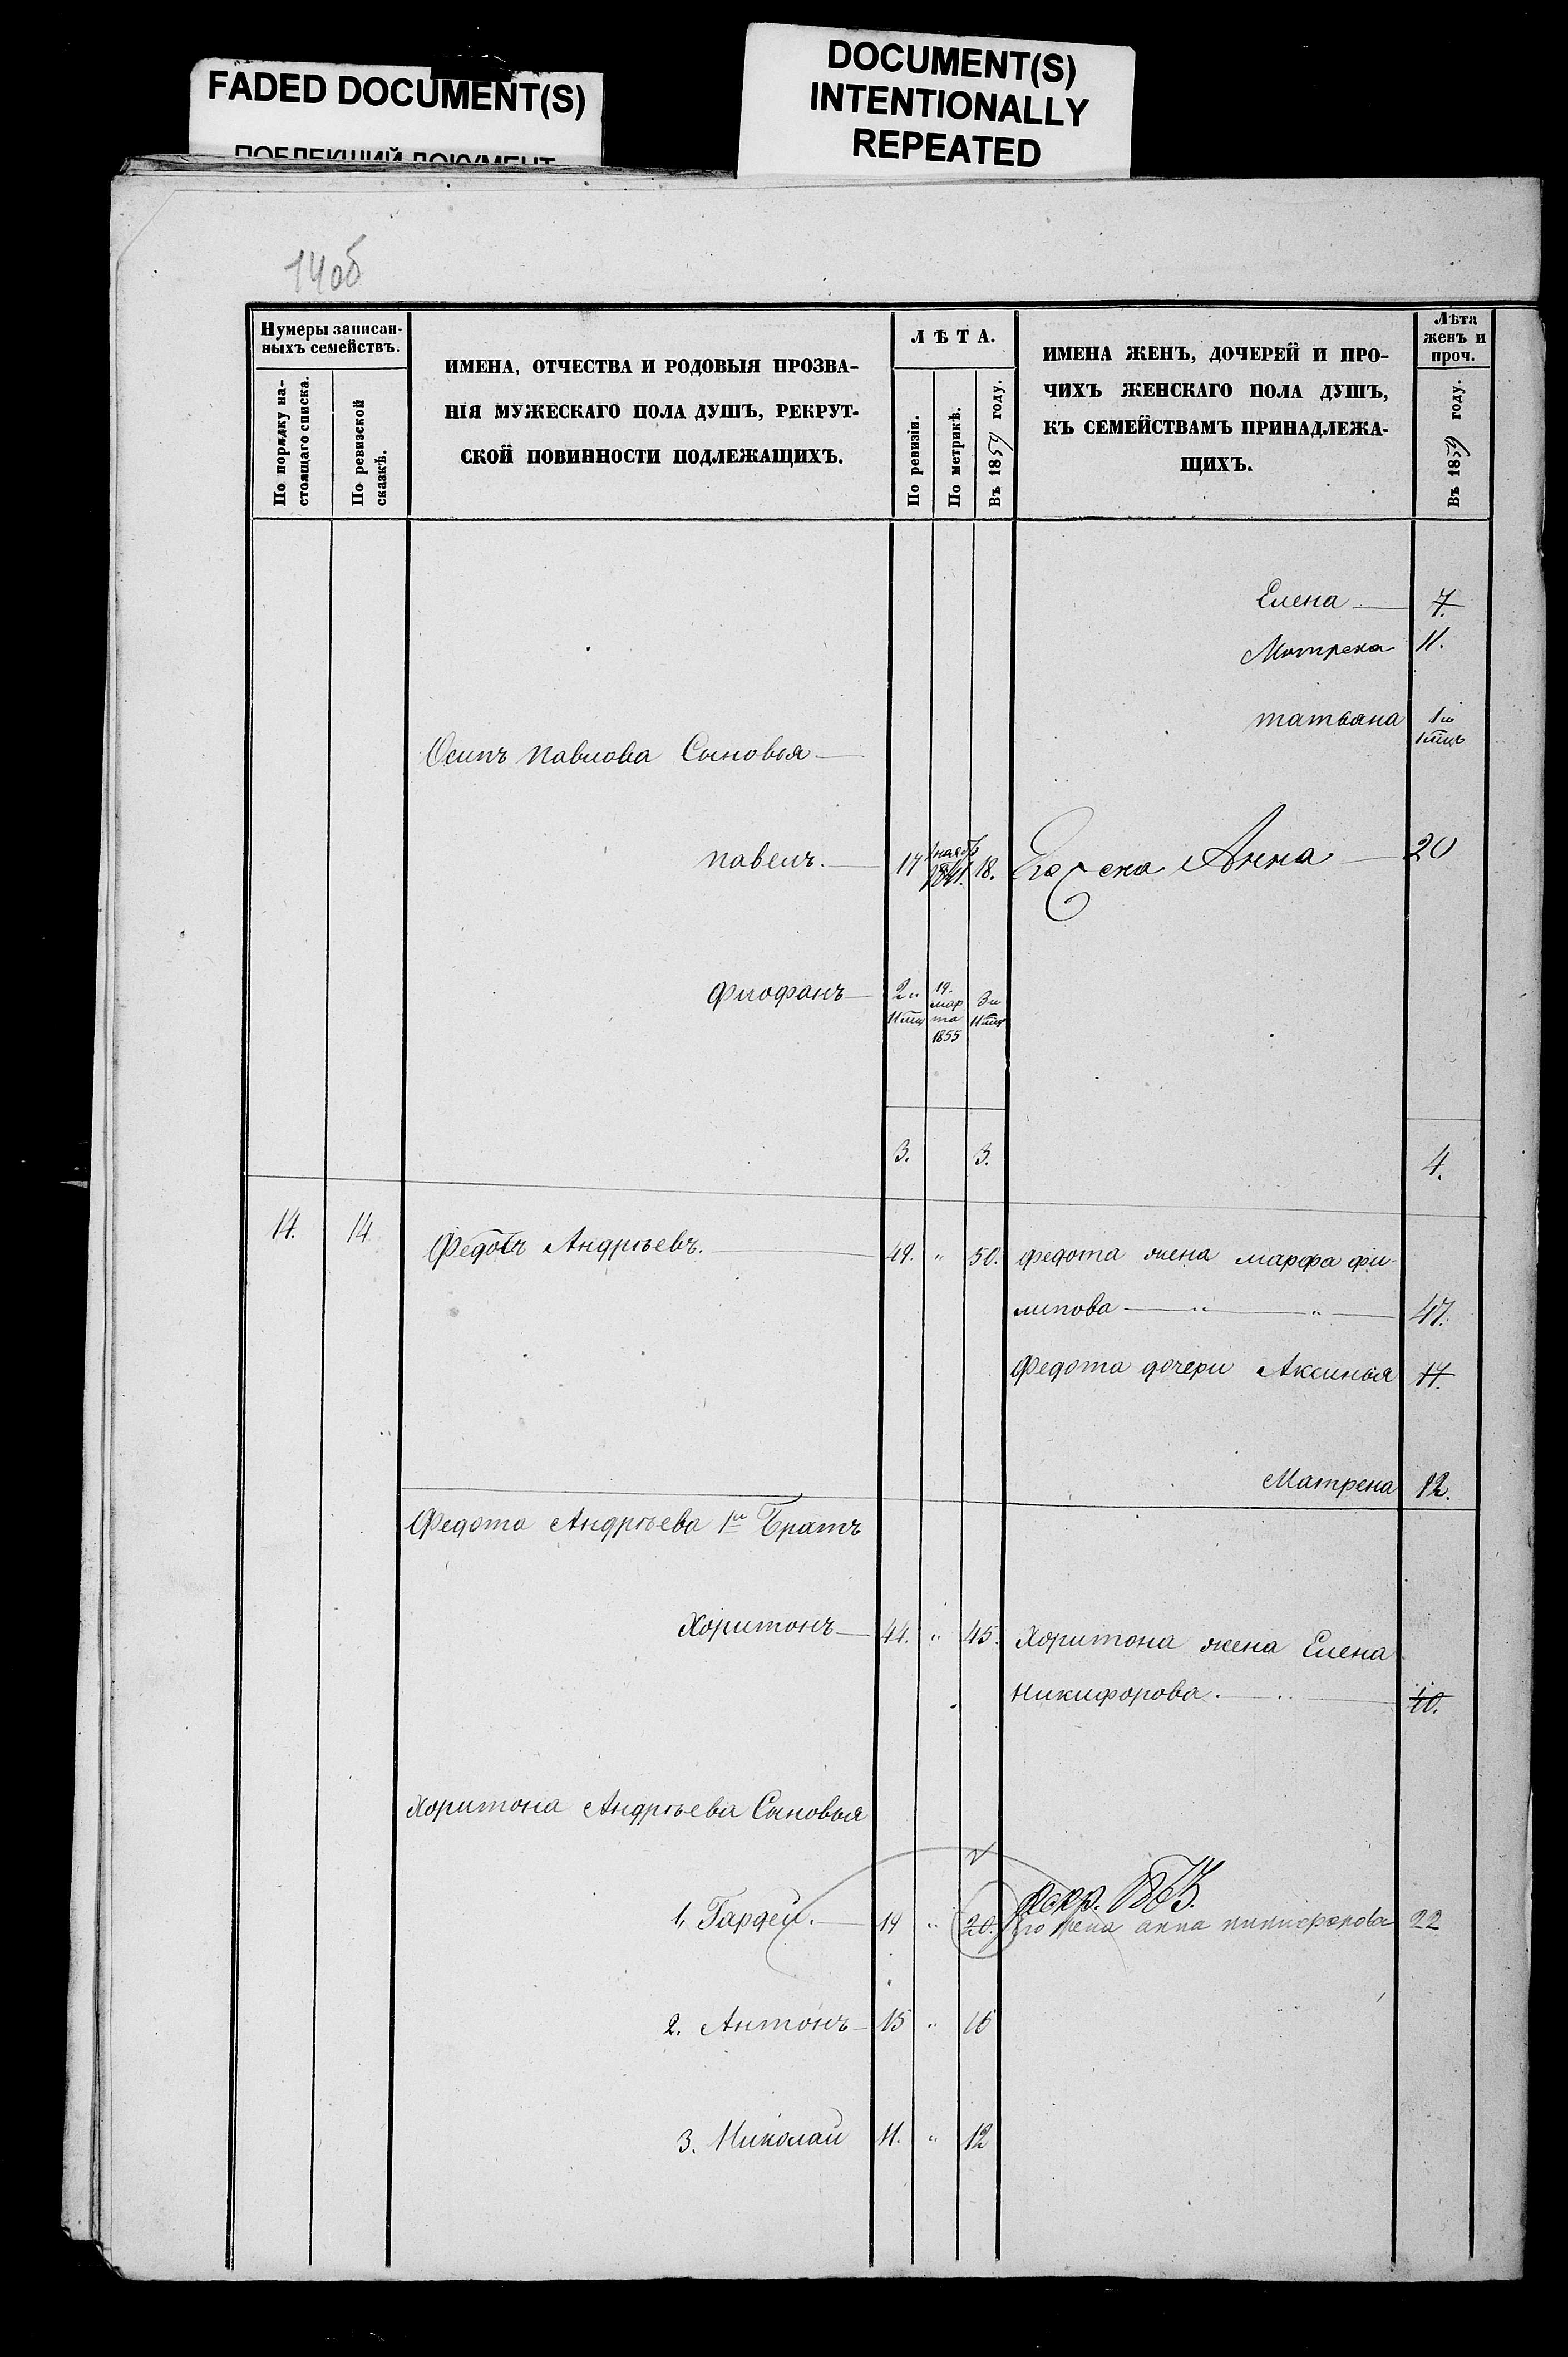 FADED DOCUMENT(S)
ПОБЛЕКШИЙ ДОКУМЕНТ
DOCUMENT(S)
INTENTIONALLY
REPEATED
14об
Нумеры записан-
ныхъ семействъ.
По порядку на-
стоящаго списка.
По ревизской
сказкѣ.
ИМЕНА, ОТЧЕСТВА И РОДОВЫЯ ПРОЗВА-
НІЯ МУЖЕСКАГО ПОЛА ДУШЪ, РЕКРУТ-
СКОЙ ПОВИННОСТИ ПОДЛЕЖАЩИХЪ.
ЛѢТА.
По ревизіи.
По метрикѣ.
Въ 1859 году.
ИМЕНА ЖЕНЪ, ДОЧЕРЕЙ И ПРО-
ЧИХЪ ЖЕНСКАГО ПОЛА ДУШЪ,
КЪ СЕМЕЙСТВАМЪ ПРИНАДЛЕЖА-
ЩИХЪ.
Лѣта
женъ и
проч.
Въ 1859 году.
Елена 7.
Мотрена 11.
татьяна 1 и
Осипъ павлова Сыновья
павелъ. 17 18. Анна 20
Филофанъ 2 и 19. мар та 1855 3 и
3. 3. 4.
14. 14 Федотъ Андрѣевъ. 49. " 50. федота жена марфа фи-
липова " " 47.
Федота дочери Аксинья 17.
Матрена 12.
Федота Андрѣева 1й Братъ
Хоритонъ 44. " 45. Хоритона жена Елена
Никифорова. 40.
Хоритона Андрѣева Сыновья
1. Гардей. 19 " 20. его жена анна никифорова 22
2. Антонъ 15 " 16
3. Николай 11. " 12